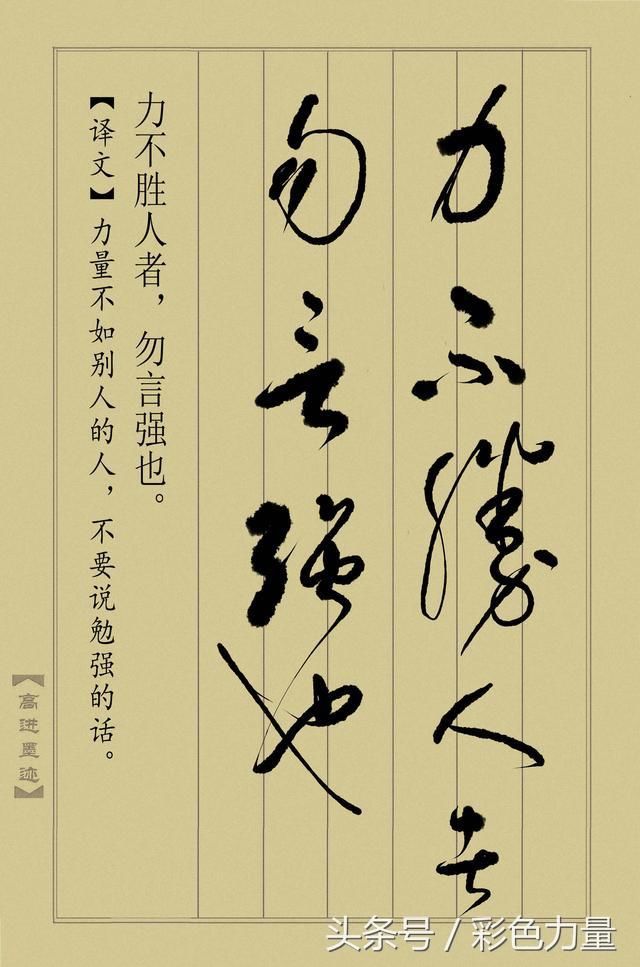 力不勝人者
勿言强也
力不胜人者，勿言强也。
【译文】力量不如别人的人，不要说勉强的话。
【高进墨迹】
头条号/彩色力量